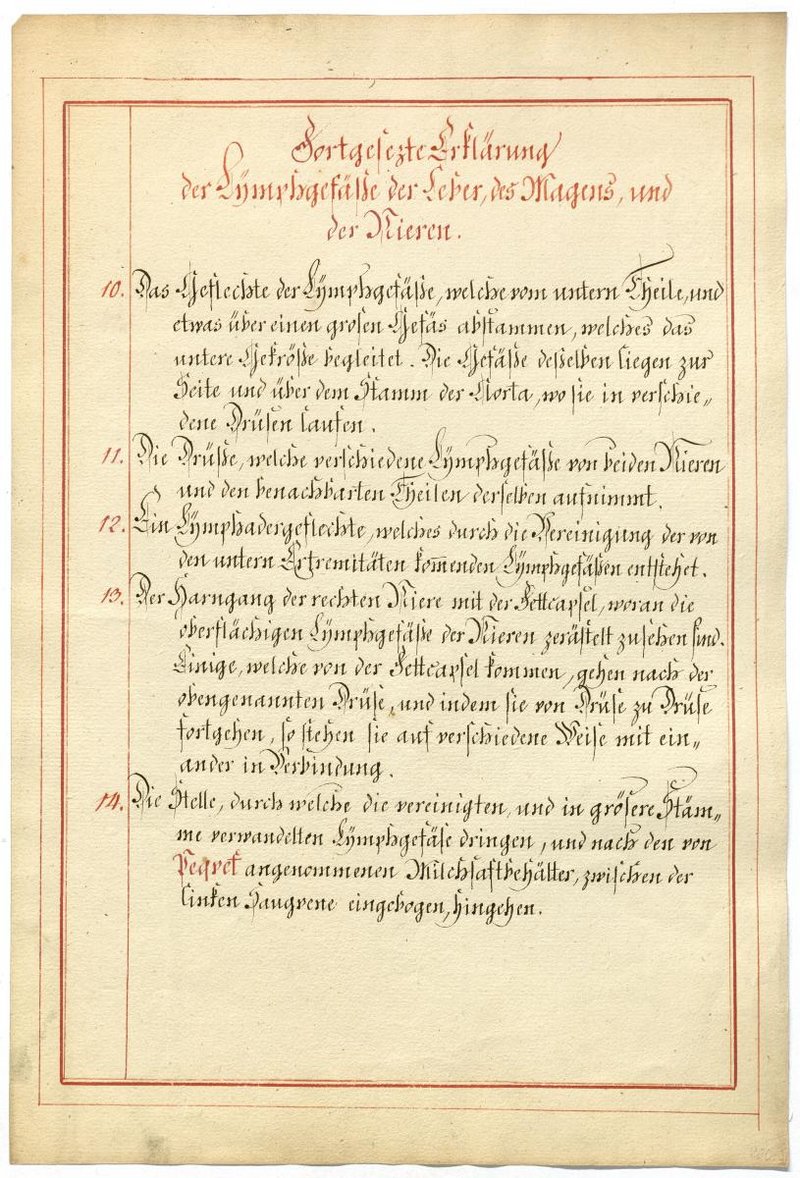 Fortgesezte Erklärung
der Lÿmphgefäße der Leber, des Magens, und
der Nieren.
10. Das Geflechte der Lÿmphgefäße, welche vom untern Theile, und
etwas über einen grosen Gefäs abstammen, welches das
untere Gekröße begleitet. Die Gefäße deßelben liegen zur
Seite und über dem Stamm der Aorta, wo sie in verschie„
dene Drüsen laufen.
11. Die Drüße, welche verschiedene Lÿmphgefäße von beiden Nieren
und den benachbarten Theilen derselben aufnimmt.
12. Ein Lÿmphadergeflechte, welches durch die Vereinigung der von
den untern Extremitäten kom̅enden Lÿmphgefäßen entstehet.
13. Der Harngang der rechten Niere mit der Fettcapsel, woran die
oberflächigen Lÿmphgefäße der Nieren zerästelt zusehen sind.
Einige, welche von der Fettcapsel kommen, gehen nach der
obengenannten Drüse, und indem sie von Drüse zu Drüse
fortgehen, so stehen sie auf verschiedene Weise mit ein„
ander in Verbindung.
14. Die Stelle, durch welche die vereinigten, und in grösere Stäm„
me verwandelten Lÿmphgefäse dringen, und nach den von
Peqvet angenommenen Milchsaftbehälter, zwischen der
linken Saugvene eingebogen, hingehen.